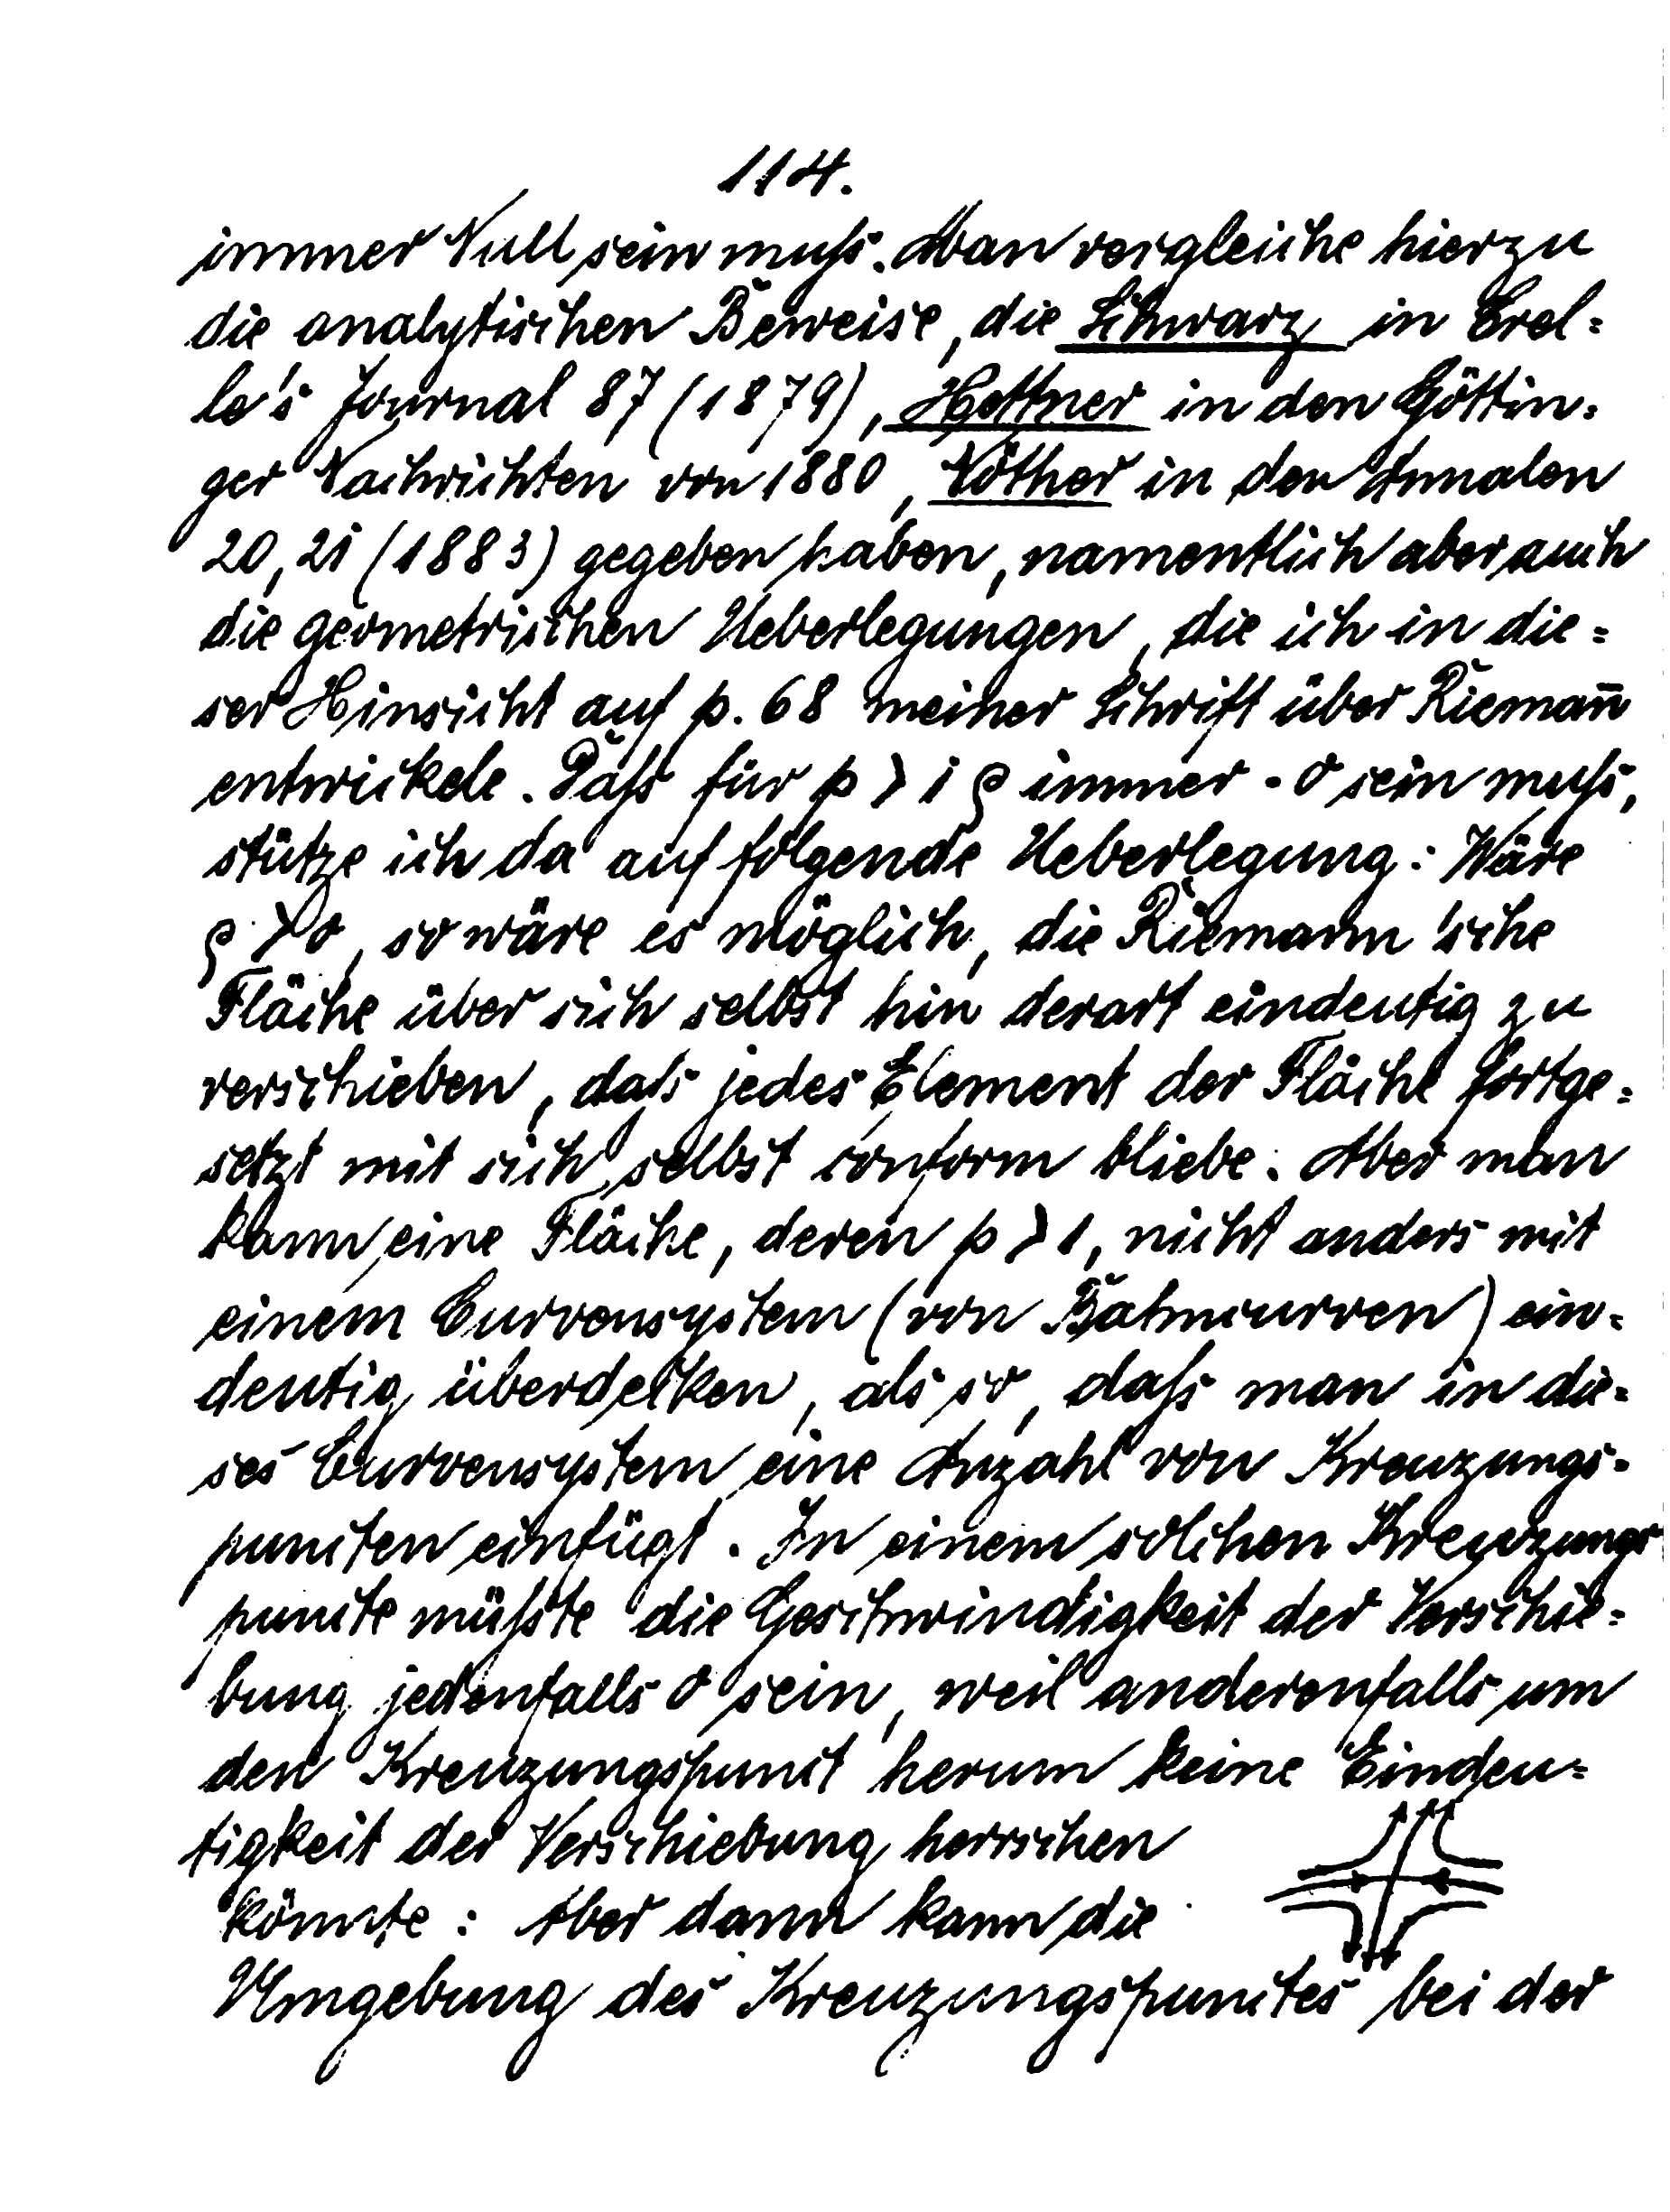 114.
immer Null sein muß. Man vergleiche hierzu
die analytischen Beweise, die Schwarz in Crel=
le's Journal 87 (1879), Hettner in den Göttin=
ger Nachrichten von 1880, Nöther in den Annalen
20, 21 (1883) gegeben haben, namentlich aber auch
die geometrischen Ueberlegungen, die ich in die=
ser Hinsicht auf p. 68 meiner Schrift über Riemañ
entwickele. Daß für p > 1 ρ immer = 0 sein muß,
stütze ich da auf folgende Ueberlegung: Wäre
ρ > 0, so wäre es möglich, die Riemann'sche
Fläche über sich selbst hin derart eindeutig zu
verschieben, daß jedes Element der Fläche fortge=
setzt mit sich selbst conform bliebe. Aber man
kann eine Fläche, deren p > 1, nicht anders mit
einem Curvensystem (von Bahncurven) ein=
deutig überdecken, als so, daß man in die=
ses Curvensystem eine Anzahl von Kreuzungs=
puncten einfügt. In einem solchen Kreuzungs
puncte müßte die Geschwindigkeit der Verschie=
bung jedenfalls 0 sein, weil anderenfalls um
den Kreuzungspunct herum keine Eindeu=
tigkeit der Verschiebung herrschen
könnte: Aber dann kann die
Umgebung des Kreuzungspunctes bei der